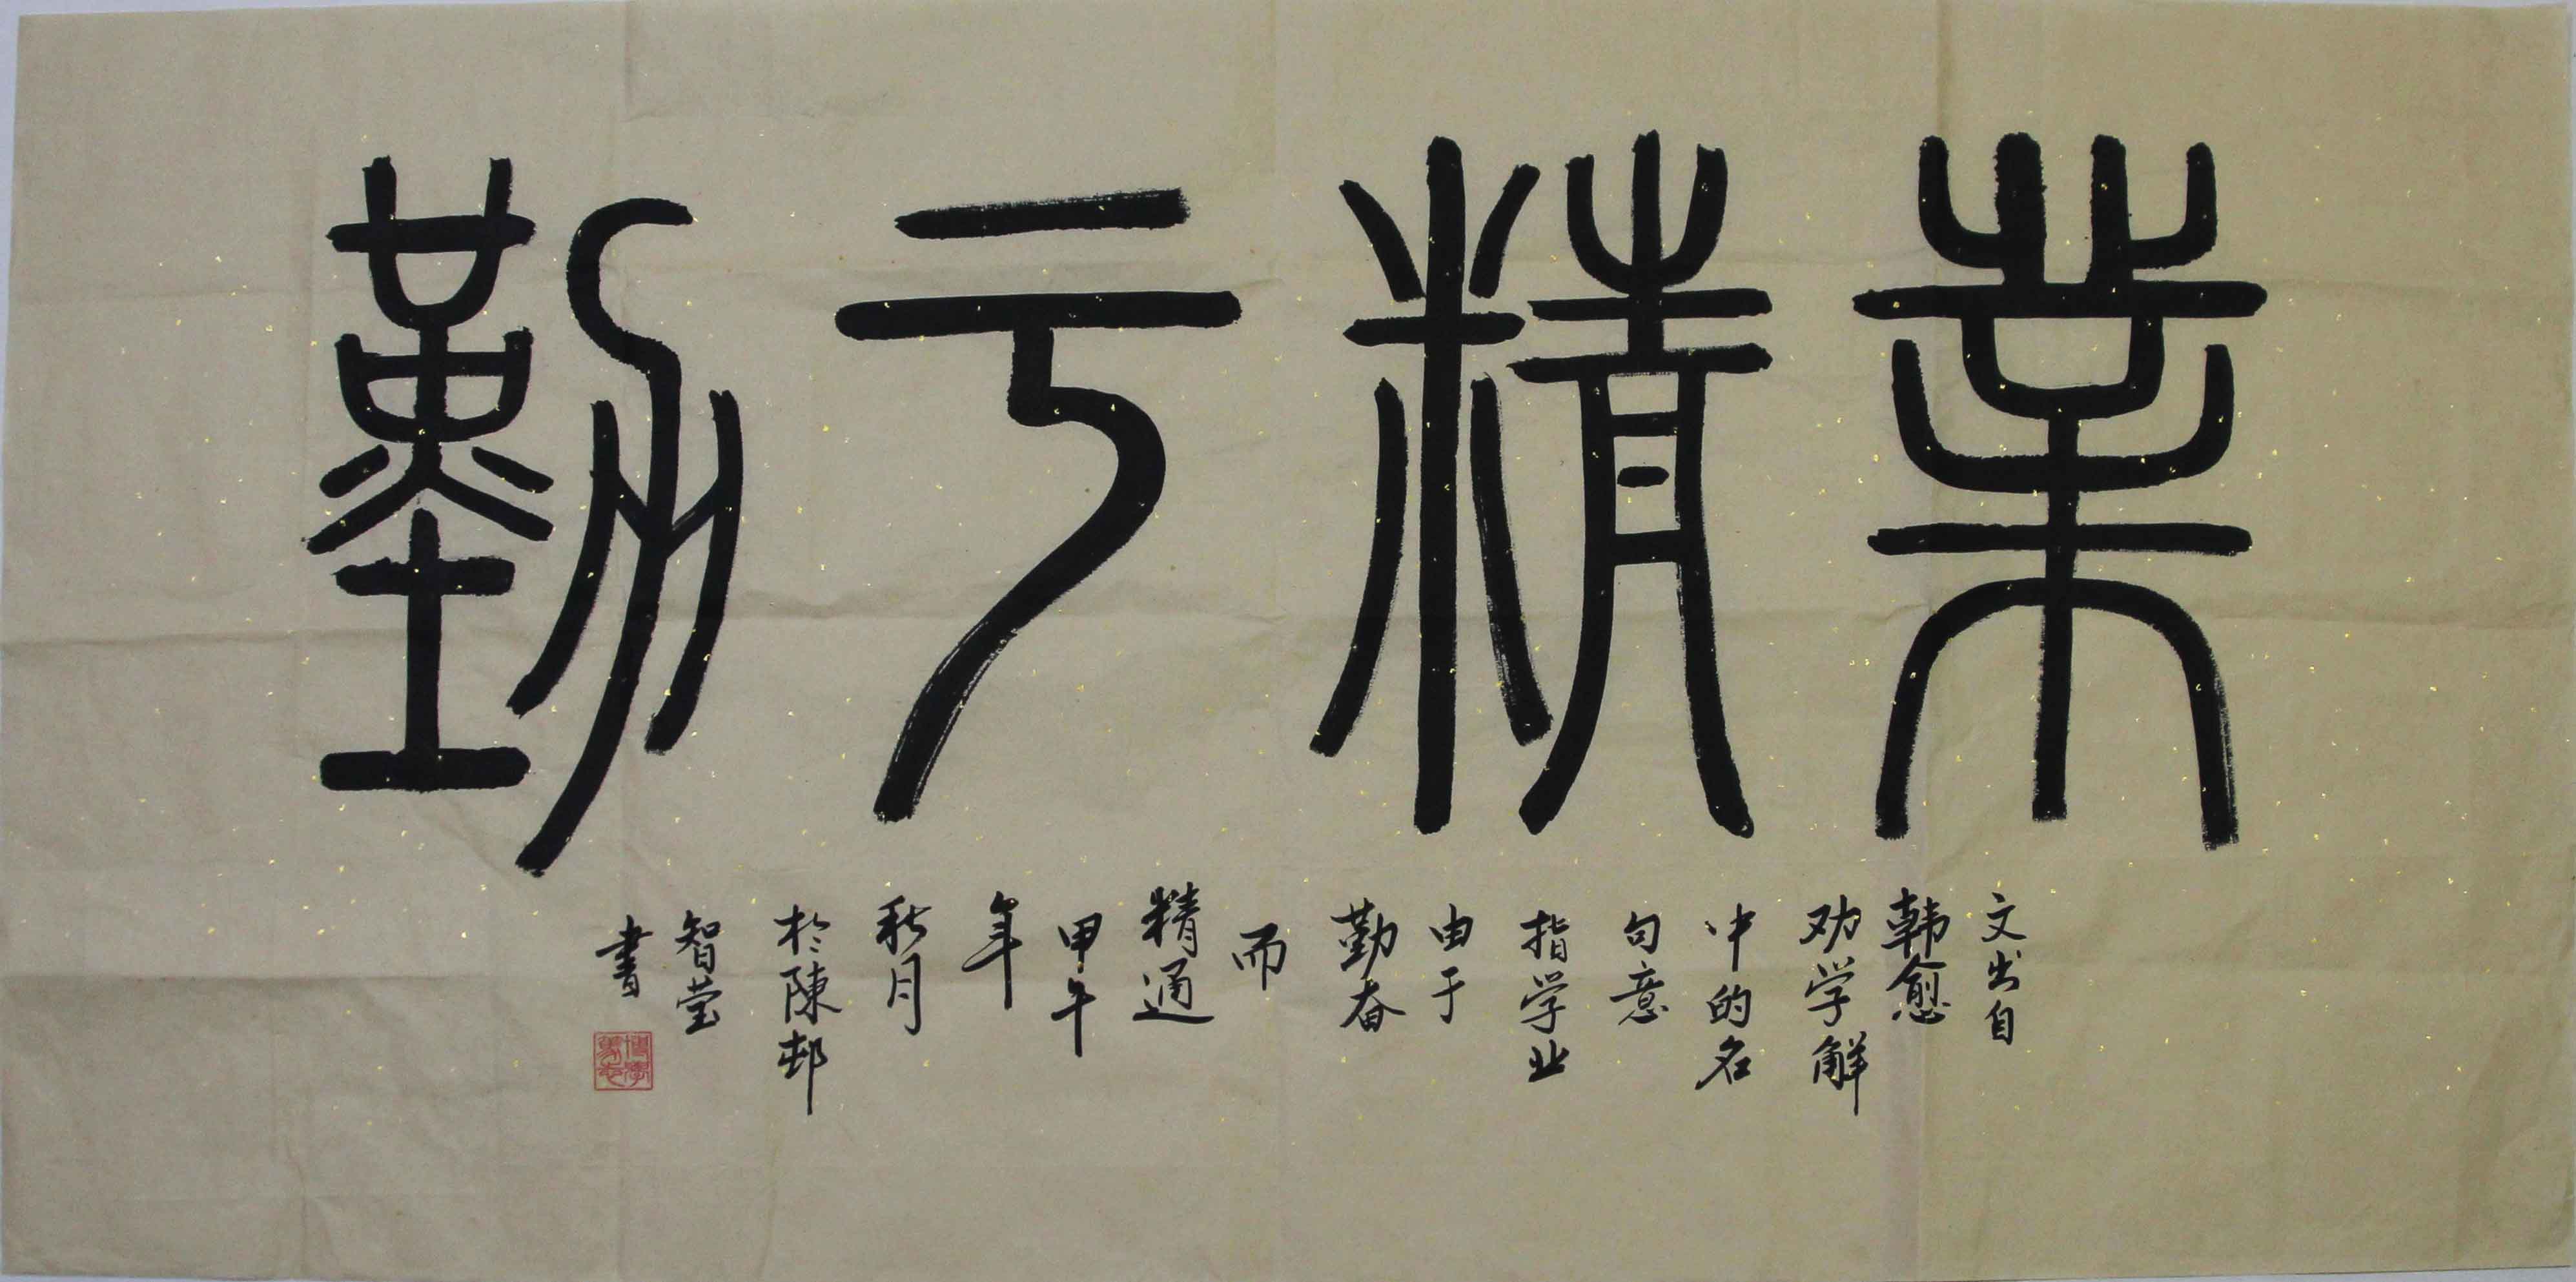 業精亏勤
文出自
韩愈
劝学解
中的名
句意
指学业
由于
勤奋
而
精通
甲午
年
秋月
於陳邨
智莹
書
博学
笃志